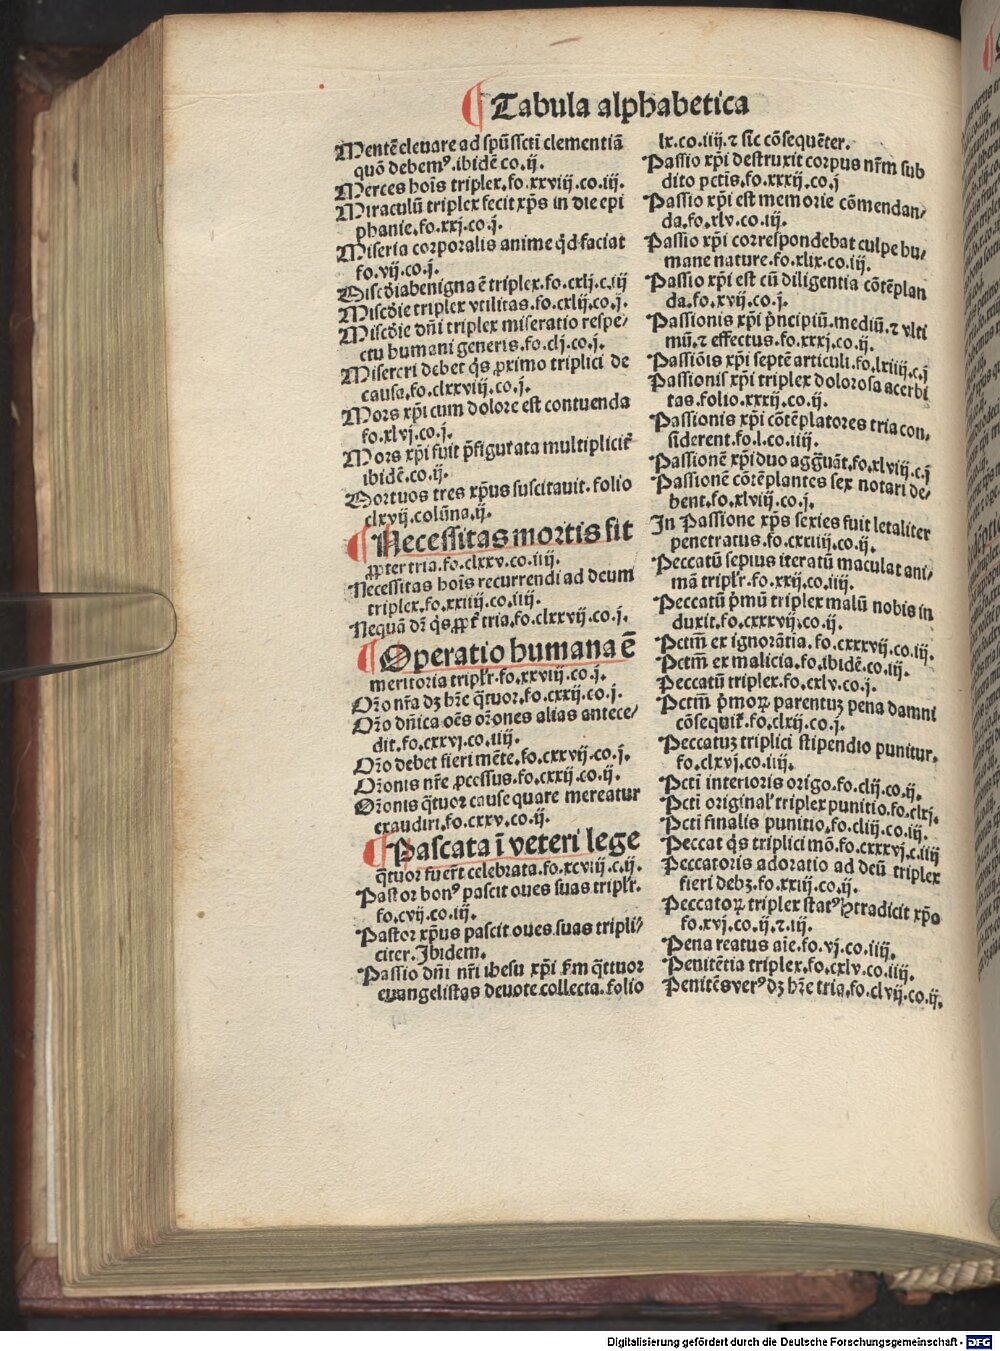 ¶Tabula alphabetica
Mentē eleuare ad spū̄ scti clementiā
quō debemꝰ. ibidē co.ij.
Merces hoīs triplex.fo.xxviij.co.iij.
Miraculū triplex fecit xp̄s in die epi
phanie.fo.xxj.co.j.
Miseria corporalis anime qd faciat
fo.vij.co.j.
Misc̄dia benigna ē triplex.fo.cxlj.c.iij
Misc̄die triplex vtilitas.fo.cxlij.co.j.
Misc̄die dn̄i triplex miseratio respe/
ctu humani generis.fo.clj.co.j.
Misereri debet q̄s ꝓximo triplici de
causa.fo.clxxviij.co.j.
Mors xp̄i cum dolore est contuenda
fo.xlvj.co.j.
Mors xp̄i fuit p̄figurata multiplicit̄
ibidē.co.ij.
Mortuos tres xp̄us suscitauit. folio
clxvij.colūna.ij.
¶Necessitas mortis fit
ꝓpter tria.fo.clxxv.co.iiij.
Necessitas hoīs recurrendi ad deum
triplex.fo.xxiiij.co.iiij.
Nequā dr̄ q̄s ꝓpt̄ tria.fo.clxxvij.co.j.
¶Operatio humana ē
meritoria triplr̄.fo.xxviij.co.j.
Or̄o nr̄a dꝫ hr̄e q̄tuor.fo.cxxij.co.j.
Or̄o dn̄ica oēs or̄ones alias antece/
dit.fo.cxxvj.co.iiij.
Or̄o debet fieri mēte.fo.cxxvij.co.j.
Or̄onis nr̄e ꝓcessus.fo.cxxij.co.ij.
Or̄onis q̄tuor cause quare mereatur
exaudiri.fo.cxxv.co.ij.
¶Pascata ī veteri lege
q̄tuor fuer̄t celebrata.fo.xcviij.c.ij.
Pastor bonꝰ pascit oues suas triplr̄.
fo.cvij.co.iij.
Pastor xp̄us pascit oues suas tripli/
citer. Ibidem.
Passio dn̄i nr̄i ihesu xp̄i s̄m q̄ttuor
euangelistas deuote collecta. folio
lx.co.iiij.⁊ sic cōsequēter.
Passio xp̄i destruxit corpus nr̄m sub
dito pctīs.fo.xxxij.co.j
Passio xp̄i est memorie cōmendan/
da.fo.xlv.co.iij.
Passio xp̄i correspondebat culpe hu/
mane nature.fo.xlix.co.iij.
Passio xp̄i est cū diligentia cōtēplan
da.fo.xvij.co.j.
Passionis xp̄i p̄ncipiū.mediū.⁊ vlti
mū.⁊ effectus.fo.xxxj.co.ij.
Passiōis xp̄i septē articuli.fo.lxiiij.c.j
Passionis xp̄i triplex dolorosa acerbi
tas.folio.xxxij.co.ij.
Passionis xp̄i cōtēplatores tria con/
siderent.fo.l.co.iiij.
Passionē xp̄i duo agḡuāt.fo.xlviij.c.j
Passionē cōtēplantes sex notari de/
bent.fo.xlviij.co.j.
In Passione xp̄s sexies fuit letaliter
penetratus.fo.cxxiiij.co.ij.
Peccatū sepius iteratū maculat ani/
mā triplr̄.fo.xxij.co.iiij.
Peccatū p̄mū triplex malū nobis in
duxit.fo.cxxxvij.co.ij.
Pctm̄ ex ignorātia.fo.cxxxvij.co.iij.
Pctm̄ ex malicia.fo.ibidē.co.iij.
Peccatū triplex.fo.cxlv.co.j.
Pctm̄ p̄moꝝ parentuꝫ pena damni
cōsequit̄.fo.clxij.co.j.
Peccatuꝫ triplici stipendio punitur.
fo.clxvj.co.iiij.
Pctī interioris origo.fo.clij.co.ij.
Pctī original̄ triplex punitio.fo.clxj.
Pctī finalis punitio.fo.cliij.co.iij.
Peccat q̄s triplici mō.fo.cxxxvj.c.iiij
Peccatoris adoratio ad deū triplex
fieri debꝫ.fo.xxiij.co.ij.
Peccatoꝝ triplex statꝰ ꝯtradicit xp̄o
fo.xvj.co.ij.⁊.iij.
Pena reatus aīe.fo.vj.co.iiij.
Penitētia triplex.fo.cxlv.co.iiij.
Penitēs verꝰ dꝫ hr̄e tria.fo.clvij.co.ij.
Digitalisierung gefördert durch die Deutsche Forschungsgemeinschaft - DFG